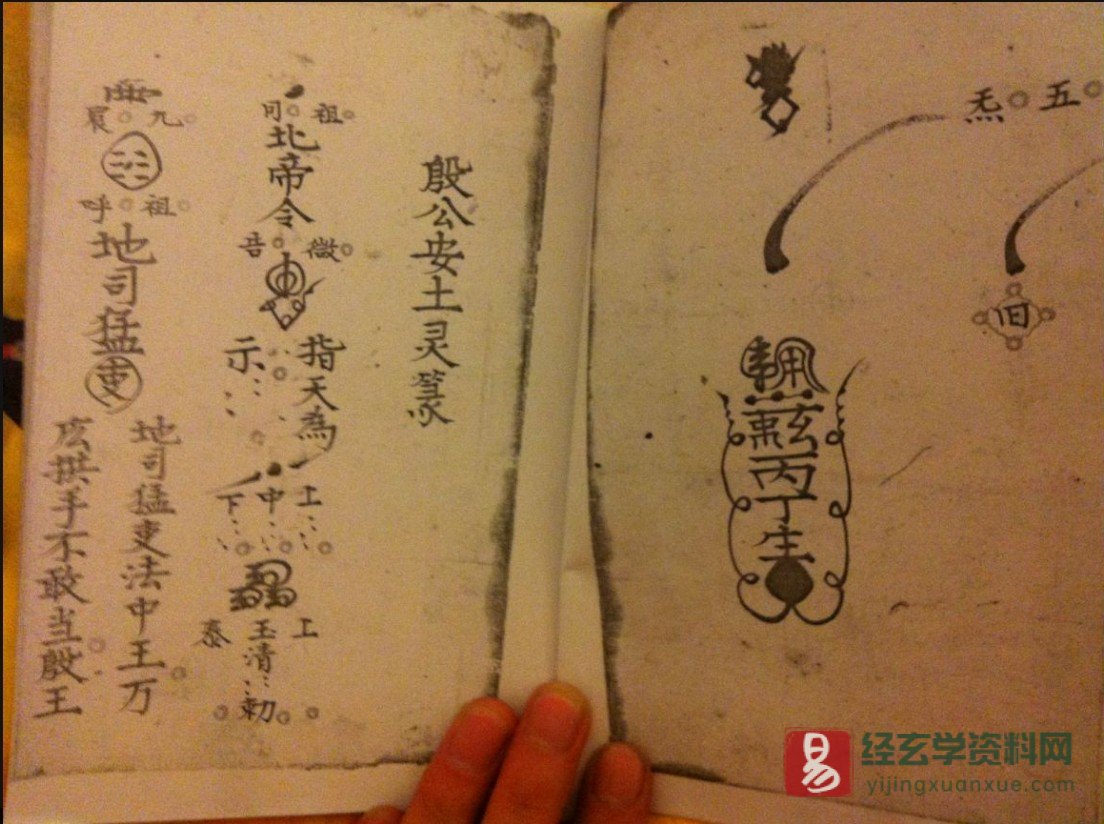 五。炁。
旧
丙丁生
殷公安土灵篆
祖。司。
北帝令
微。音。
指天為
示
上中下
上玉清
泰
勅
九。
祖。呼。
地司猛吏
地司猛吏法中王万
手不敢当殷王
易
经玄学资料网
yijingxuanxue.com